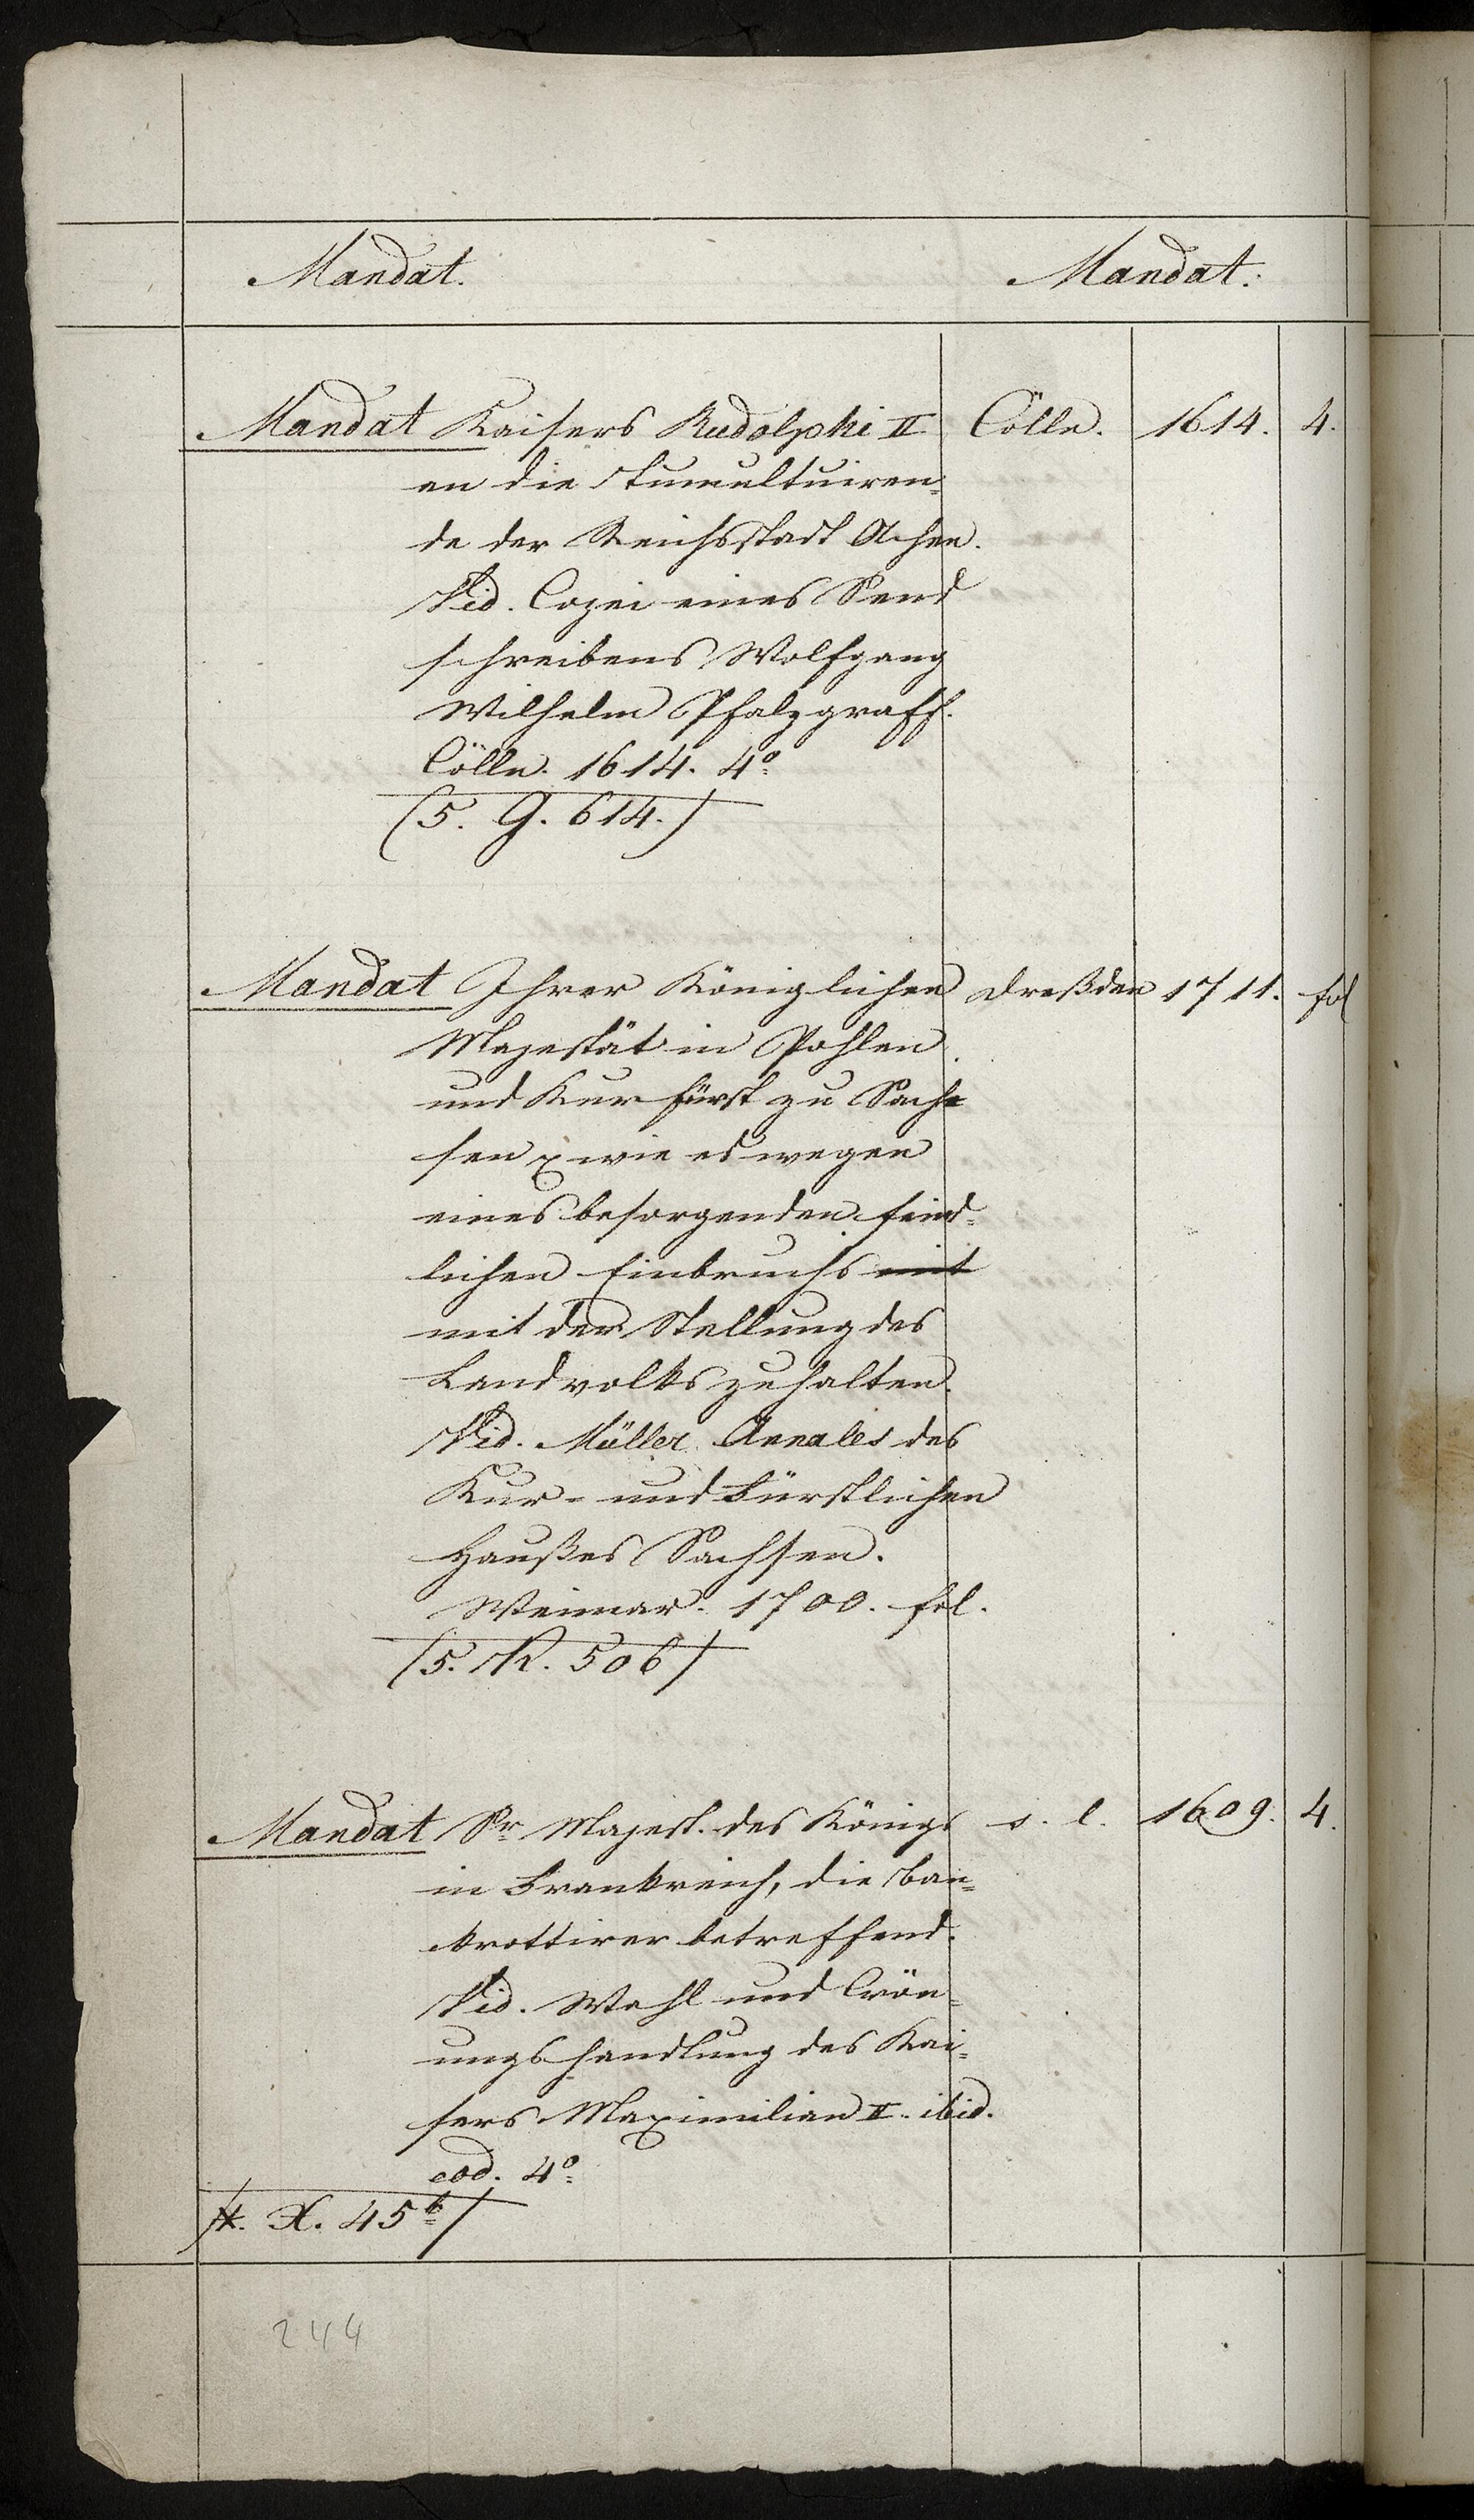 Mandat. Mandat.
Mandat Kaisers Rudolphi II Cölln. 1614. 4.
an die Tumultuiren=
de der Reichsstadt Achen.
Vid. Copei eines Send
schreibens Wolfgang
Wilhelm Pfalzgraff.
Cölln. 1614. 4º
(5. G. 614.)
Mandat Ihrer Königlichen Dreßden 1711. fol
Majestät in Pohlen
und Kurfürst zu Sach=
sen wie es wegen
eines besorgenden feind=
lichen Einbruchs mit
mit der Stellung des
Landvolks zuhalten.
Vid. Müller Annales des
Kur= und Fürstlichen
Haußes Sachsen.
Weimar. 1700. fol.
(5. K. 506)
Mandat Sr Majest. des Königs s. l. 1609. 4.
in Frankreich, die Ban=
krottirer betreffend.
Vid. Wahl und Crön=
ungshandlung des Kai=
sers Maximilian II. ibid.
eod. 4º
X. 45b)
244